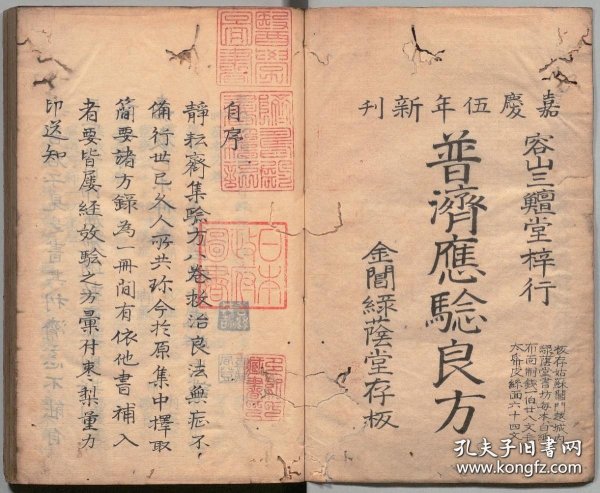 嘉慶伍年新刊
容山三鱣堂梓行
普濟應驗良方
金閶綠蔭堂存板
板存姑蘇閶門
綠蔭堂書坊每本白
六角皮絲面六十四文
自序
靜耘齋集驗方八卷救治良法無症不
備行世已久人所共珍今於原集中擇取
簡要諸方錄為一冊間有依他書補入
者要皆屢經效驗之方彙付棗梨量力
印送知
日本
政府
圖書
孔夫子旧书网
www.kongfz.com